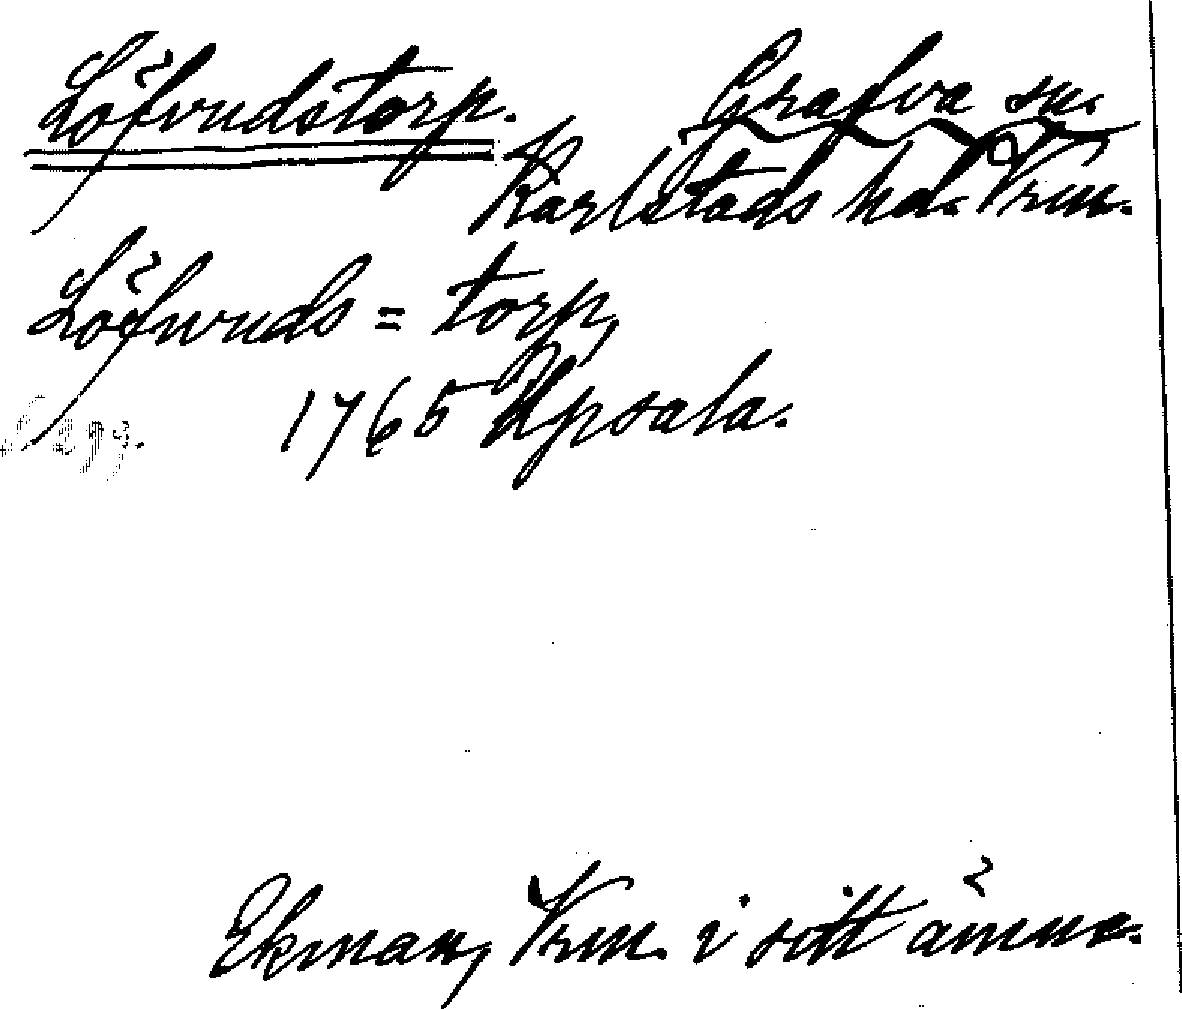 Löfvudstorp. Grafva sn.
Karlstads hd. Vrm.
Löfwuds = torp,
1765 Upsala.
299.
Ekman, Vrm. i sitt ämne.